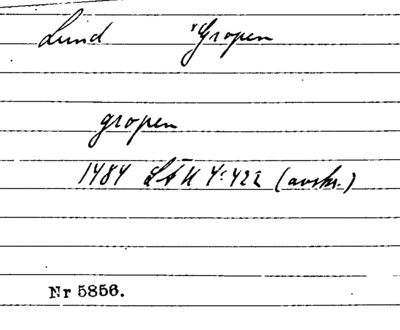 Lund "Gropen
gropen
1484 LÄU 4:422 (avskr.)
Nr 5856.